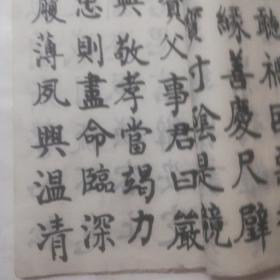 聽禍因惡
緣善慶尺璧
寸陰是競
資父事君曰嚴
與敬孝當竭力
忠則盡命臨深
履薄夙興温清